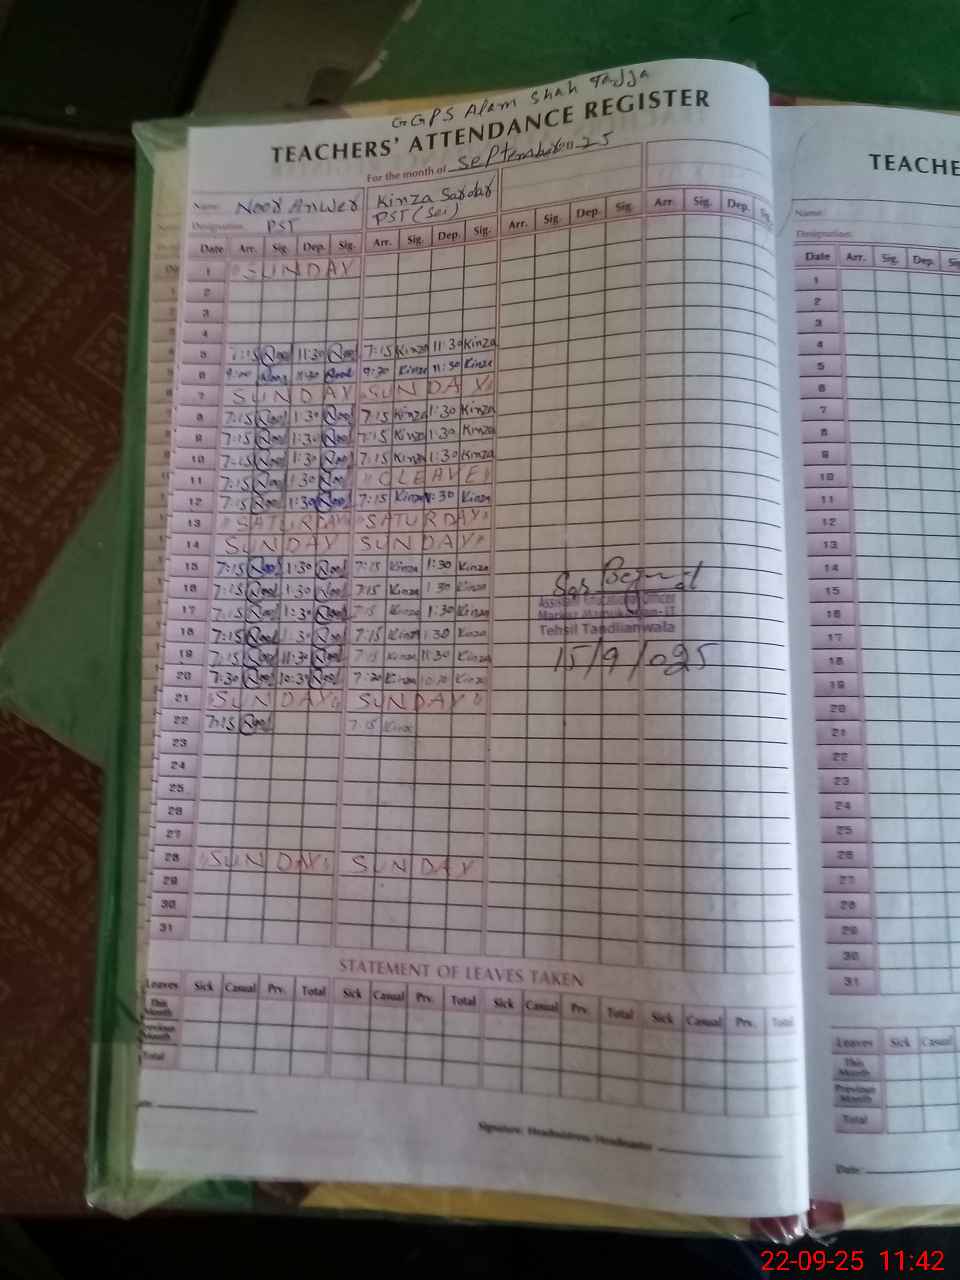 GGPS Alam Shah Tadja
TEACHERS' ATTENDANCE REGISTER
For the month of September 2025
Name: Noor Anwer Kinza Sardar
Designation: PST PST (Sci)
Date Arr. Sig. Dep. Sig. Arr. Sig. Dep. Sig. Arr. Sig. Dep. Sig. Arr. Sig. Dep. Sig.
1 "SUNDAY
2
3
4
5 7:15 Noor 11:30 Noor 7:15 Kinza 11:30 Kinza
6 9:00 Noor 11:30 Noor 9:20 Kinza 11:30 Kinza
7 SUNDAY "SUNDAY"
8 7:15 Noor 1:30 Noor 7:15 Kinza 1:30 Kinza
9 7:15 Noor 1:30 Noor 7:15 Kinza 1:30 Kinza
10 7:15 Noor 1:30 Noor 7:15 Kinza 1:30 Kinza
11 7:15 Noor 1:30 Noor "C LEAVE"
12 7:15 Noor 1:30 Noor 7:15 Kinza 1:30 Kinza
13 "SATURDAY" "SATURDAY"
14 SUNDAY SUNDAY"
15 7:15 Noor 1:30 Noor 7:15 Kinza 1:30 Kinza
16 7:15 Noor 1:30 Noor 7:15 Kinza 1:30 Kinza
17 7:15 Noor 1:30 Noor 7:15 Kinza 1:30 Kinza
18 7:15 Noor 1:30 Noor 7:15 Kinza 1:30 Kinza
19 7:15 Noor 11:30 Noor 7:15 Kinza 11:30 Kinza
20 7:30 Noor 10:30 Noor 7:20 Kinza Kinza
21 "SUNDAY" SUNDAY"
22 7:15 Noor 7:15 Kinza
23
24
25
26
27
28 "SUNDAY" SUNDAY
29
30
31
Assistant Education Officer
Tehsil Tandlianwala
15/9/025
STATEMENT OF LEAVES TAKEN
Leaves Sick Casual Prv. Total Sick Casual Prv. Total Sick Casual Prv. Total Sick Casual Prv. Total
This Month
Previous Month
Total
Signature: Headmistress/Headmaster
TEACHE
Name:
Designation:
Date Arr. Sig. Dep. Sig
1
2
3
4
5
6
7
8
9
10
11
12
13
14
15
16
17
18
19
20
21
22
23
24
25
26
27
28
29
30
31
Leaves Sick Casual
This Month
Previous Month
Total
Date:
22-09-25 11:42